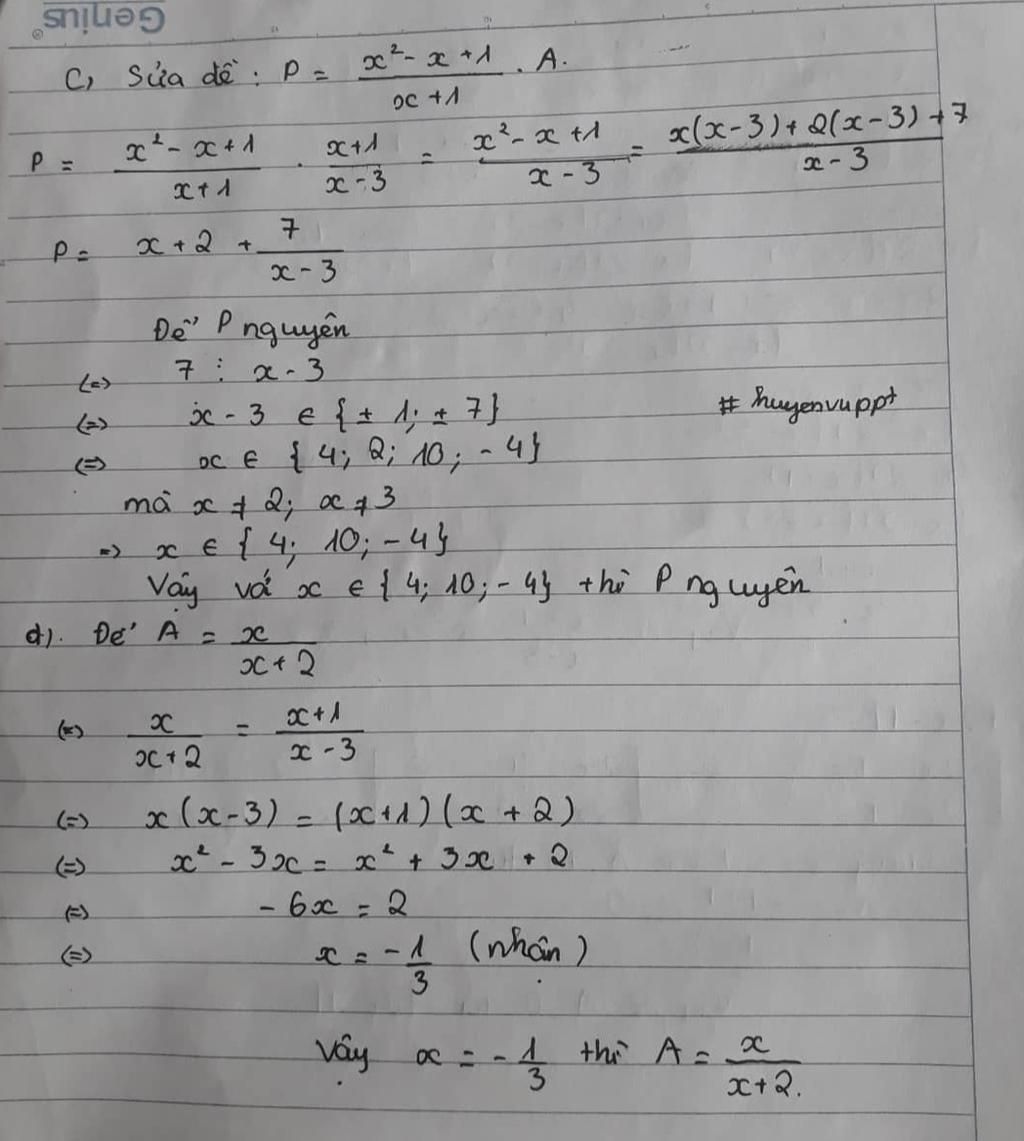 Genius
C, Sửa đề : P = (x² - x + 1)/(x + 1) . A.
P = (x² - x + 1)/(x + 1) . (x + 1)/(x - 3) = (x² - x + 1)/(x - 3) = (x(x - 3) + 2(x - 3) + 7)/(x - 3)
P = x + 2 + 7/(x - 3)
Để P nguyên
(=) 7 ⋮ x - 3
(=) x - 3 ∈ {± 1; ± 7}
# huyenvuppt
(=) x ∈ {4; 2; 10; - 4}
mà x ≠ 2; x ≠ 3
=> x ∈ {4; 10; - 4}
Vậy với x ∈ {4; 10; - 4} thì P nguyên
d). Để A = x/(x + 2)
(=) x/(x + 2) = (x + 1)/(x - 3)
(=) x(x - 3) = (x + 1)(x + 2)
(=) x² - 3x = x² + 3x + 2
(=) - 6x = 2
(=) x = - 1/3 (nhận)
Vậy x = - 1/3 thì A = x/(x + 2).